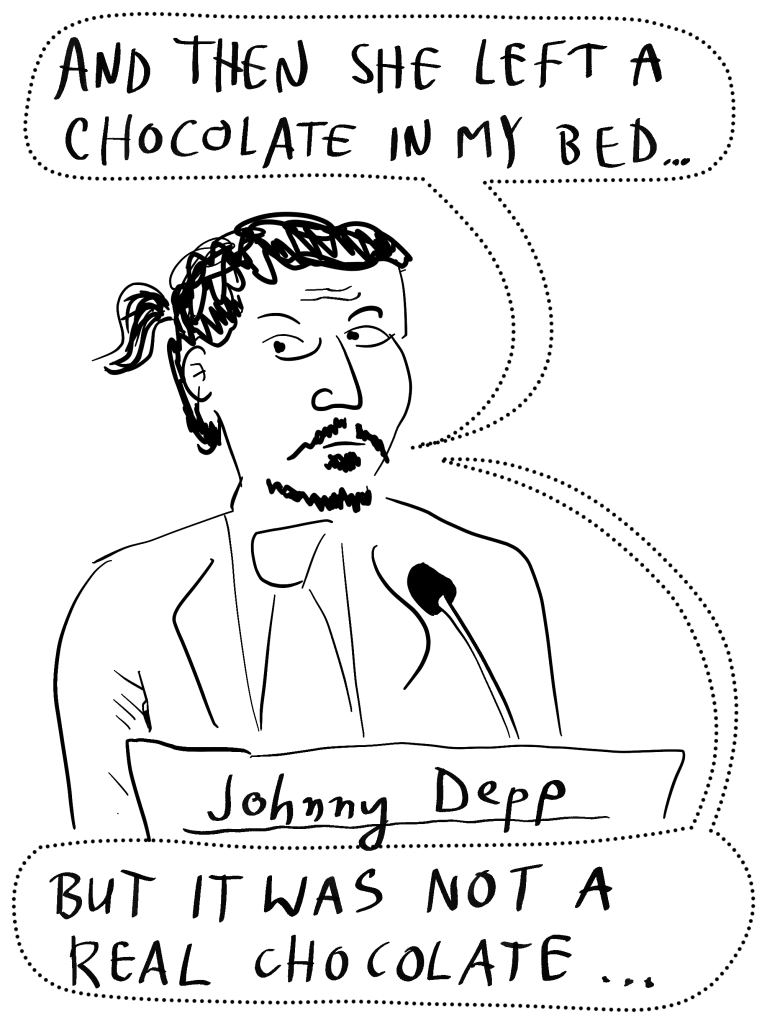 AND THEN SHE LEFT A
CHOCOLATE IN MY BED...
Johnny Depp
BUT IT WAS NOT A
REAL CHOCOLATE ...